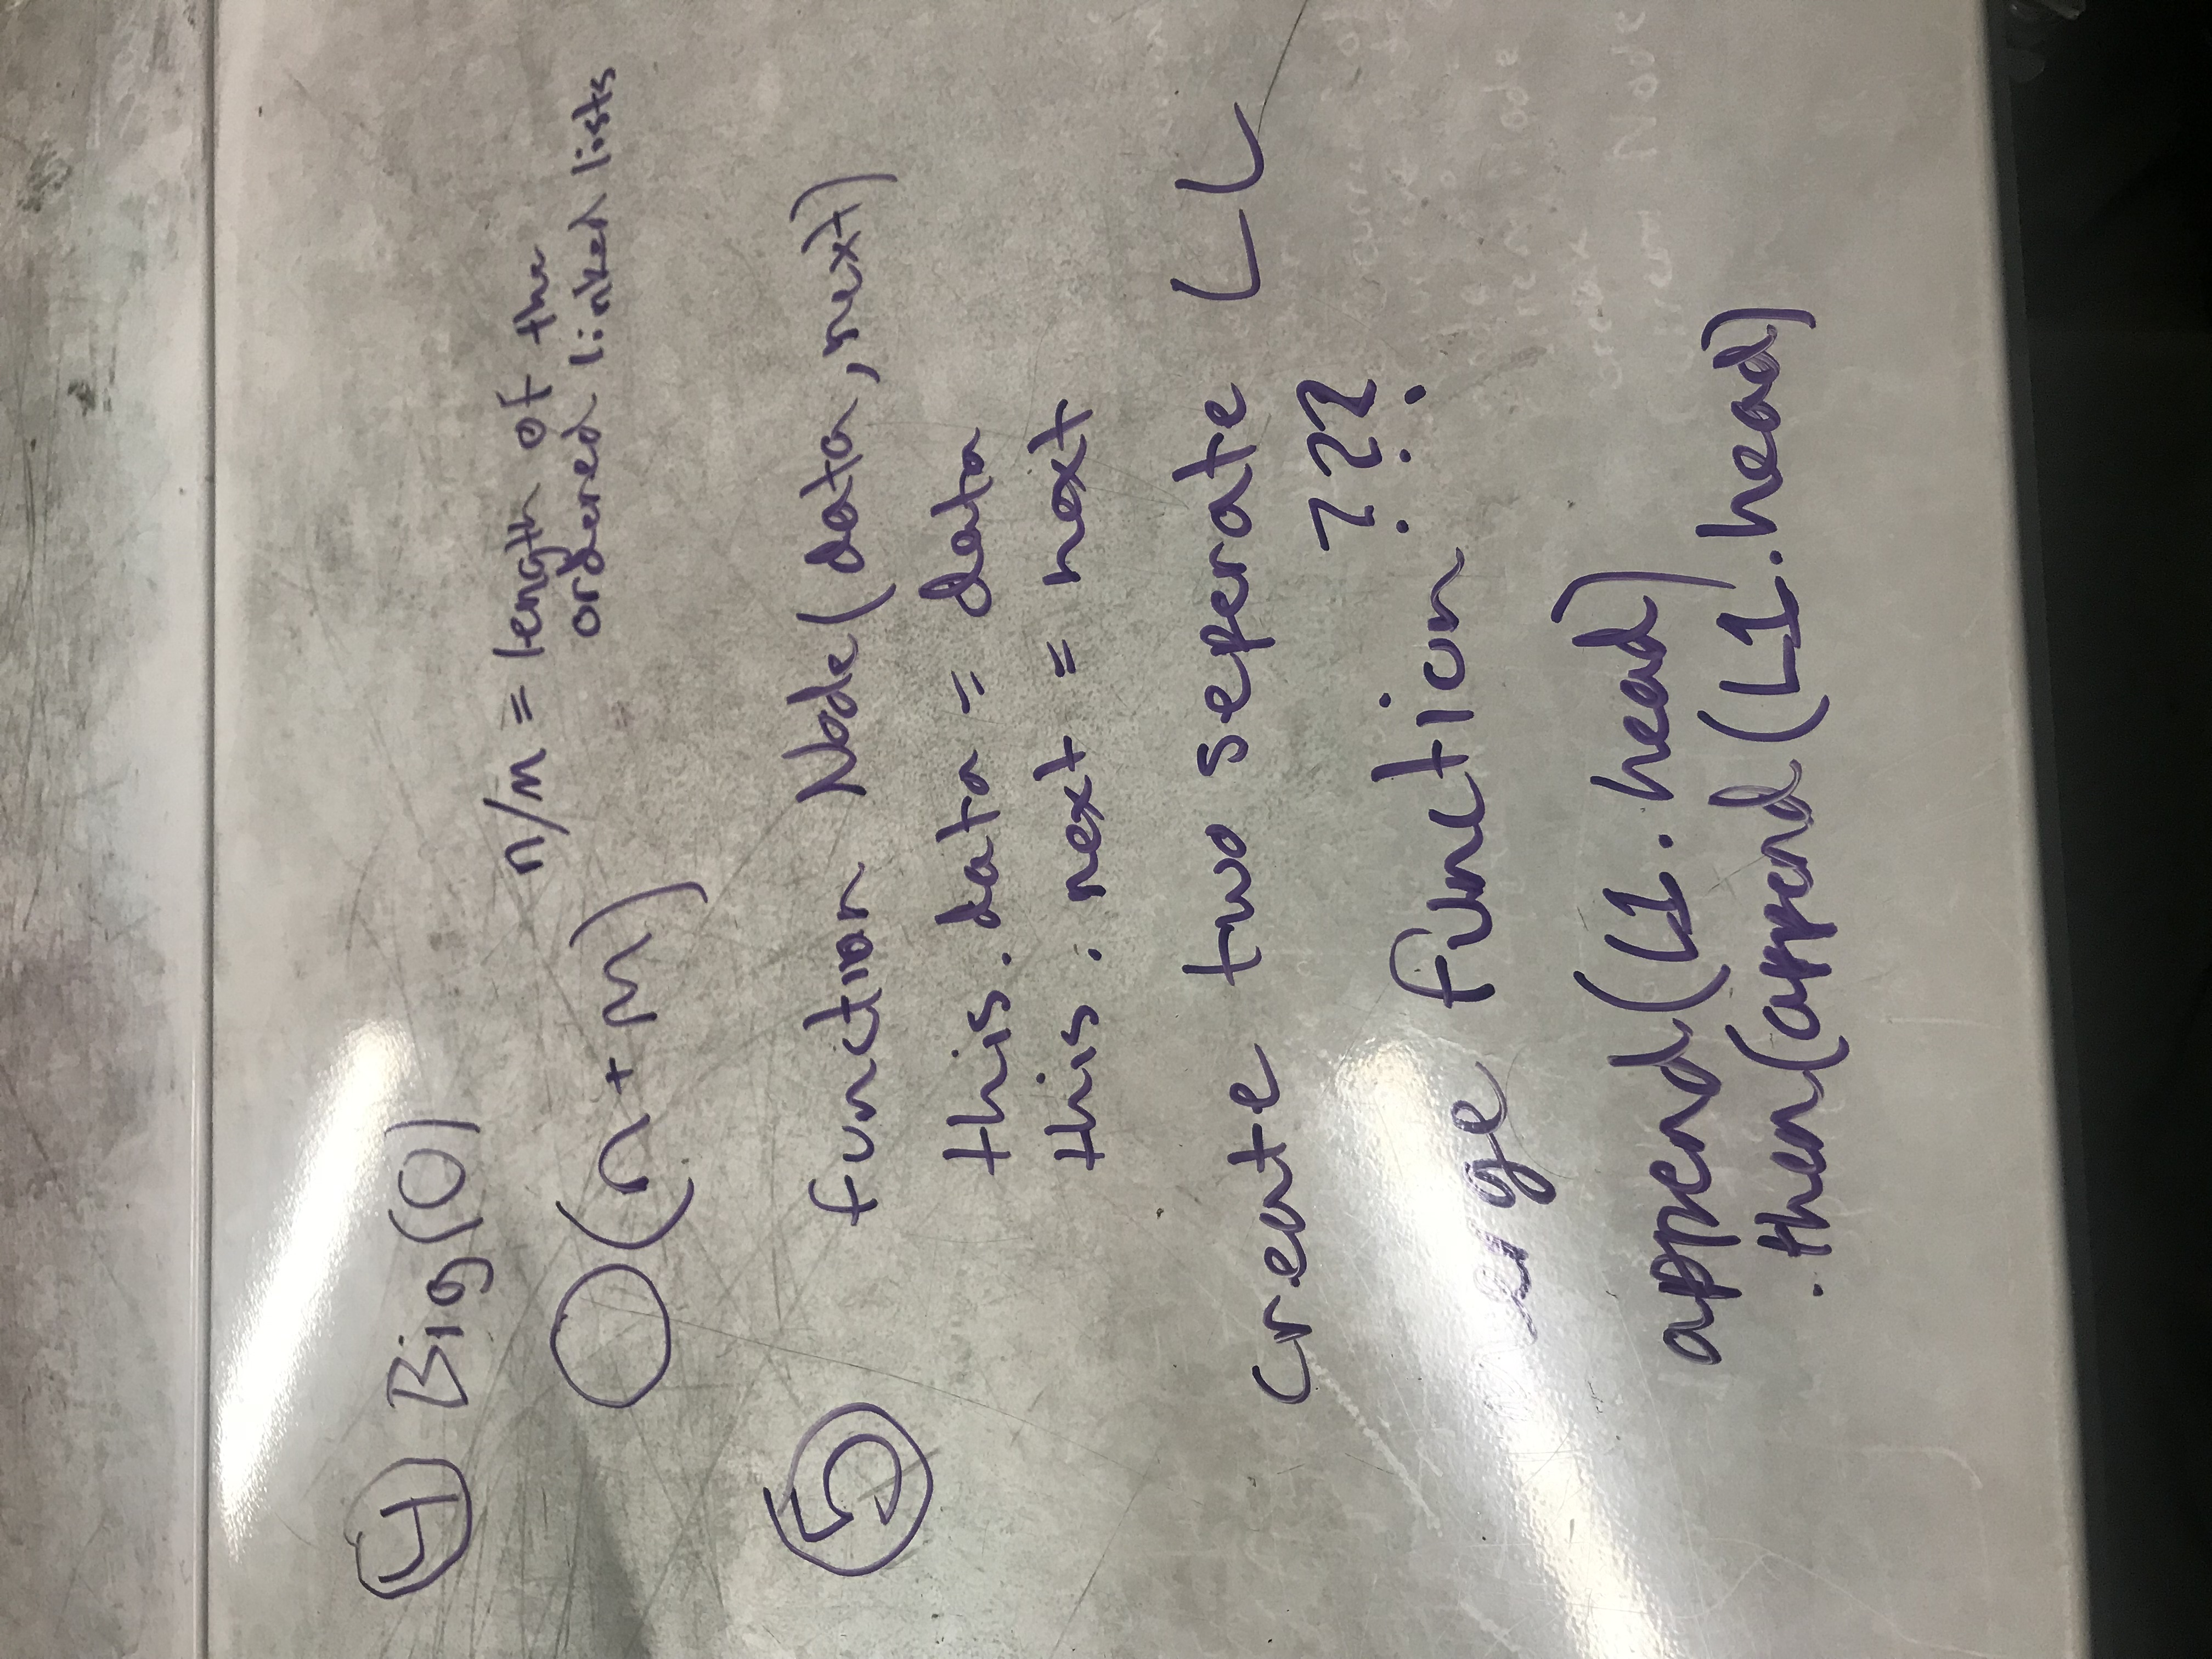 4 Big(O)
n/m = length of the
ordered linked lists
O(n+m)
5 function Node(data, next)
this.data = data
this.next = next
Create two seperate LL
???
merge function
append(L1.head)
.then(append(L1.head)